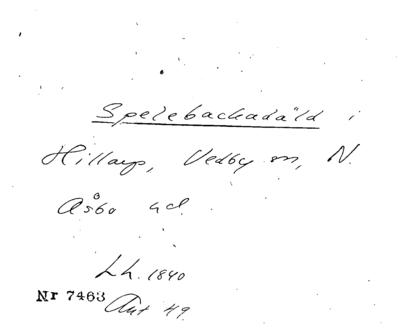 Spelebackadäld i
Hillarp, Vedby sn, N.
Åsbo hd.
Lh. 1840
Nr 7463 Ant 49